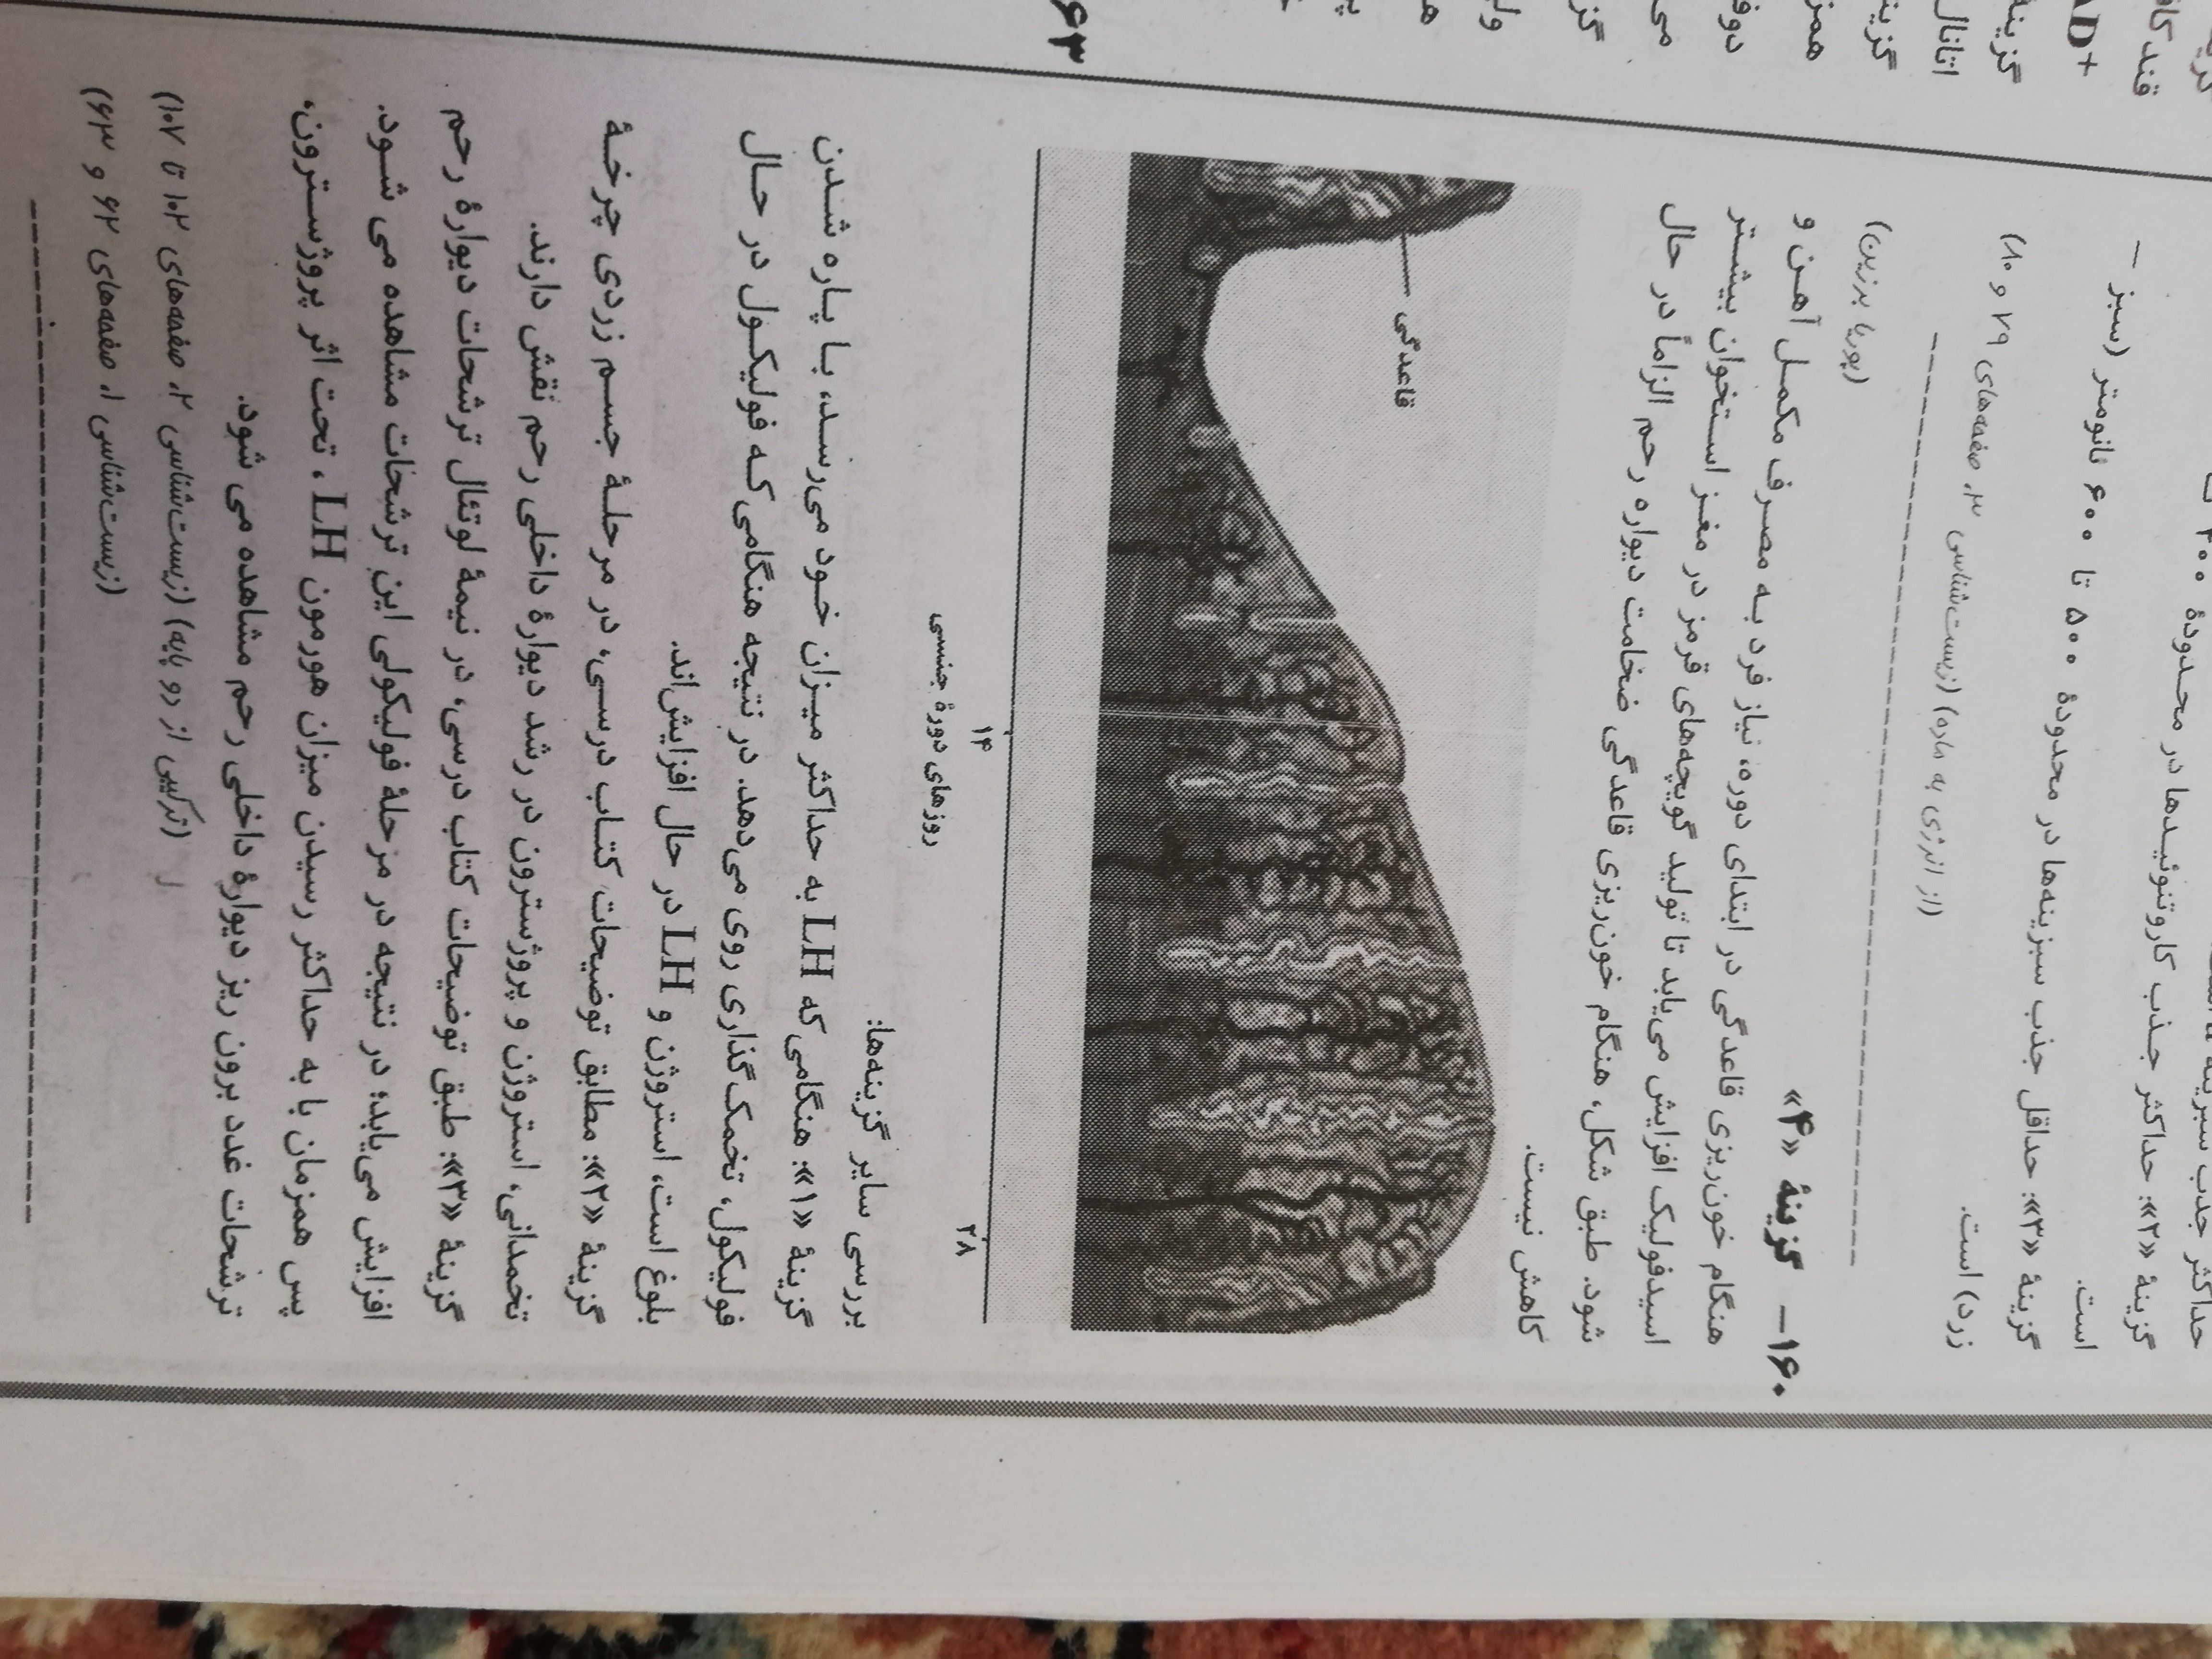 حداکثر جذب کاروتنوئیدها در محدودهٔ
گزینهٔ «۲»: حداکثر جذب کاروتنوئیدها در محدودهٔ
است.
گزینهٔ «۳»: حداقل جذب سبزینه‌ها در محدودهٔ ۵۰۰ تا ۶۰۰ نانومتر (سبز –
زرد) است.
(از انرژی به ماده) (زیست‌شناسی ۳، صفحه‌های ۷۹ و ۸۰)
۱۶۰– گزینهٔ «۴»
(پوریا برزین)
هنگام خون‌ریزی قاعدگی در ابتدای دوره، نیاز فرد به مصرف مکمل آهن و
اسیدفولیک افزایش می‌یابد تا تولید گویچه‌های قرمز در مغز استخوان بیشتر
شود. طبق شکل، هنگام خون‌ریزی قاعدگی ضخامت دیواره رحم الزاماً در حال
کاهش نیست.
قاعدگی
۱۴
۲۸
روزهای دورهٔ جنسی
بررسی سایر گزینه‌ها:
گزینهٔ «۱»: هنگامی‌که LH به حداکثر میزان خود می‌رسد، با پاره شدن
فولیکول، تخمک‌گذاری روی می‌دهد. در نتیجه هنگامی‌که فولیکول در حال
بلوغ است، استروژن و LH در حال افزایش‌اند.
گزینهٔ «۲»: مطابق توضیحات کتاب درسی، در مرحلهٔ جسم زردی چرخهٔ
تخمدانی، استروژن و پروژسترون در رشد دیوارهٔ داخلی رحم نقش دارند.
گزینهٔ «۳»: طبق توضیحات کتاب درسی، در نیمهٔ لوتئال ترشحات دیوارهٔ رحم
افزایش می‌یابد؛ در نتیجه در مرحلهٔ فولیکولی این ترشحات مشاهده می شود.
پس همزمان با به حداکثر رسیدن میزان هورمون LH، تحت اثر پروژسترون،
ترشحات غدد برون ریز دیوارهٔ داخلی رحم مشاهده می شود.
(ترکیبی از دو پایه) (زیست‌شناسی ۲، صفحه‌های ۱۰۲ تا ۱۰۷)
(زیست‌شناسی ۱، صفحه‌های ۶۲ و ۶۳)